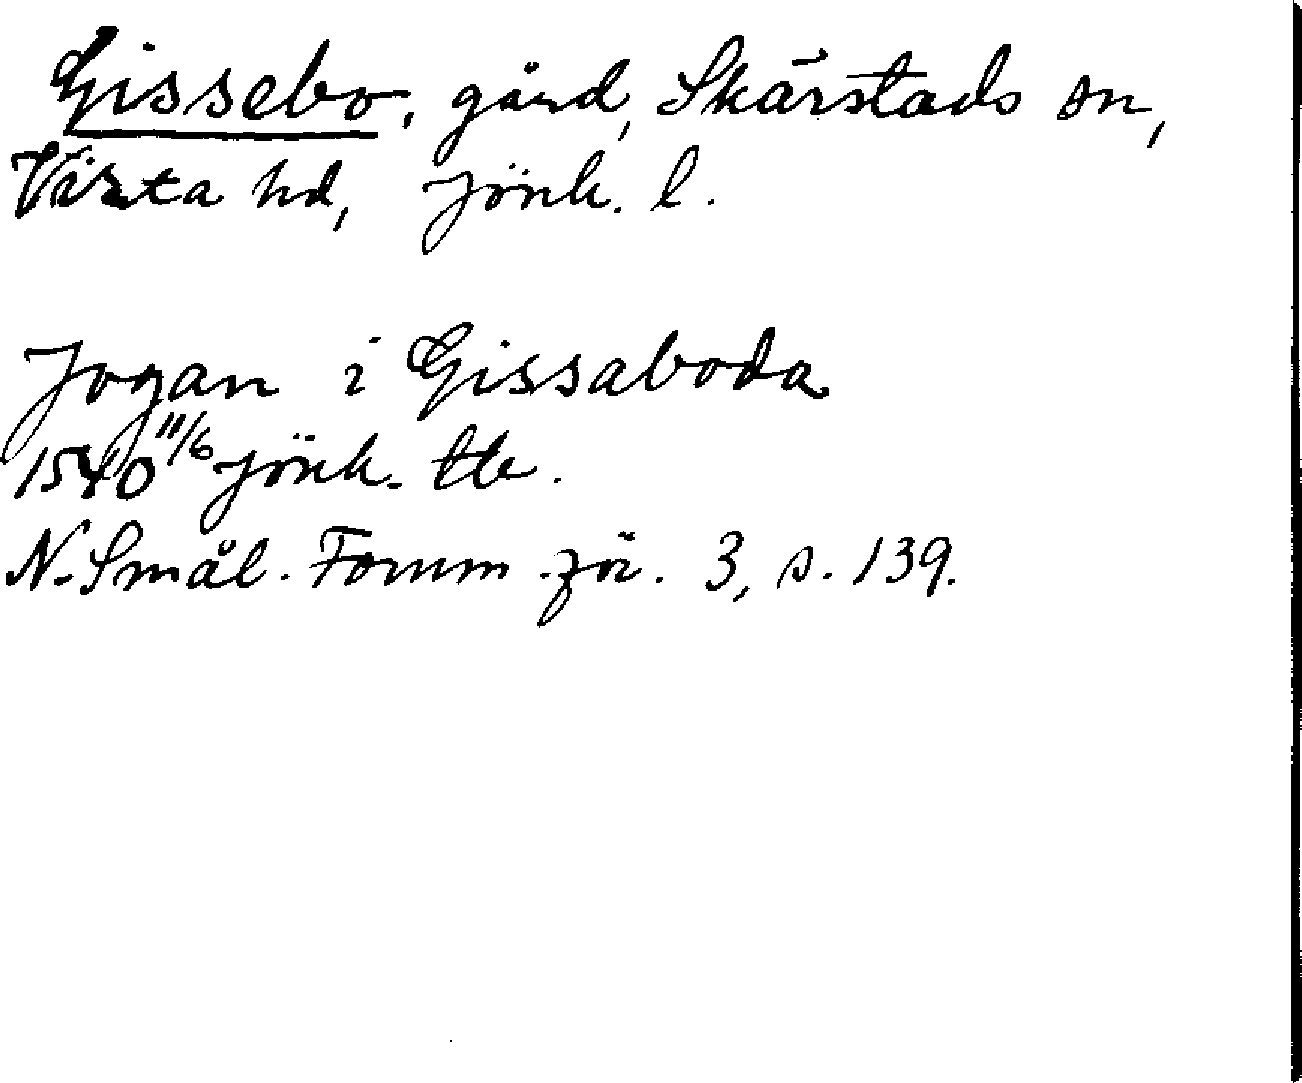 Gissebo, gård, Skärstads sn,
Vista hd, Jönk. l.
Jogan i Gissaboda
1540 11/6 Jönk. tb.
N. Smål. Fornm. för. 3, s. 139.